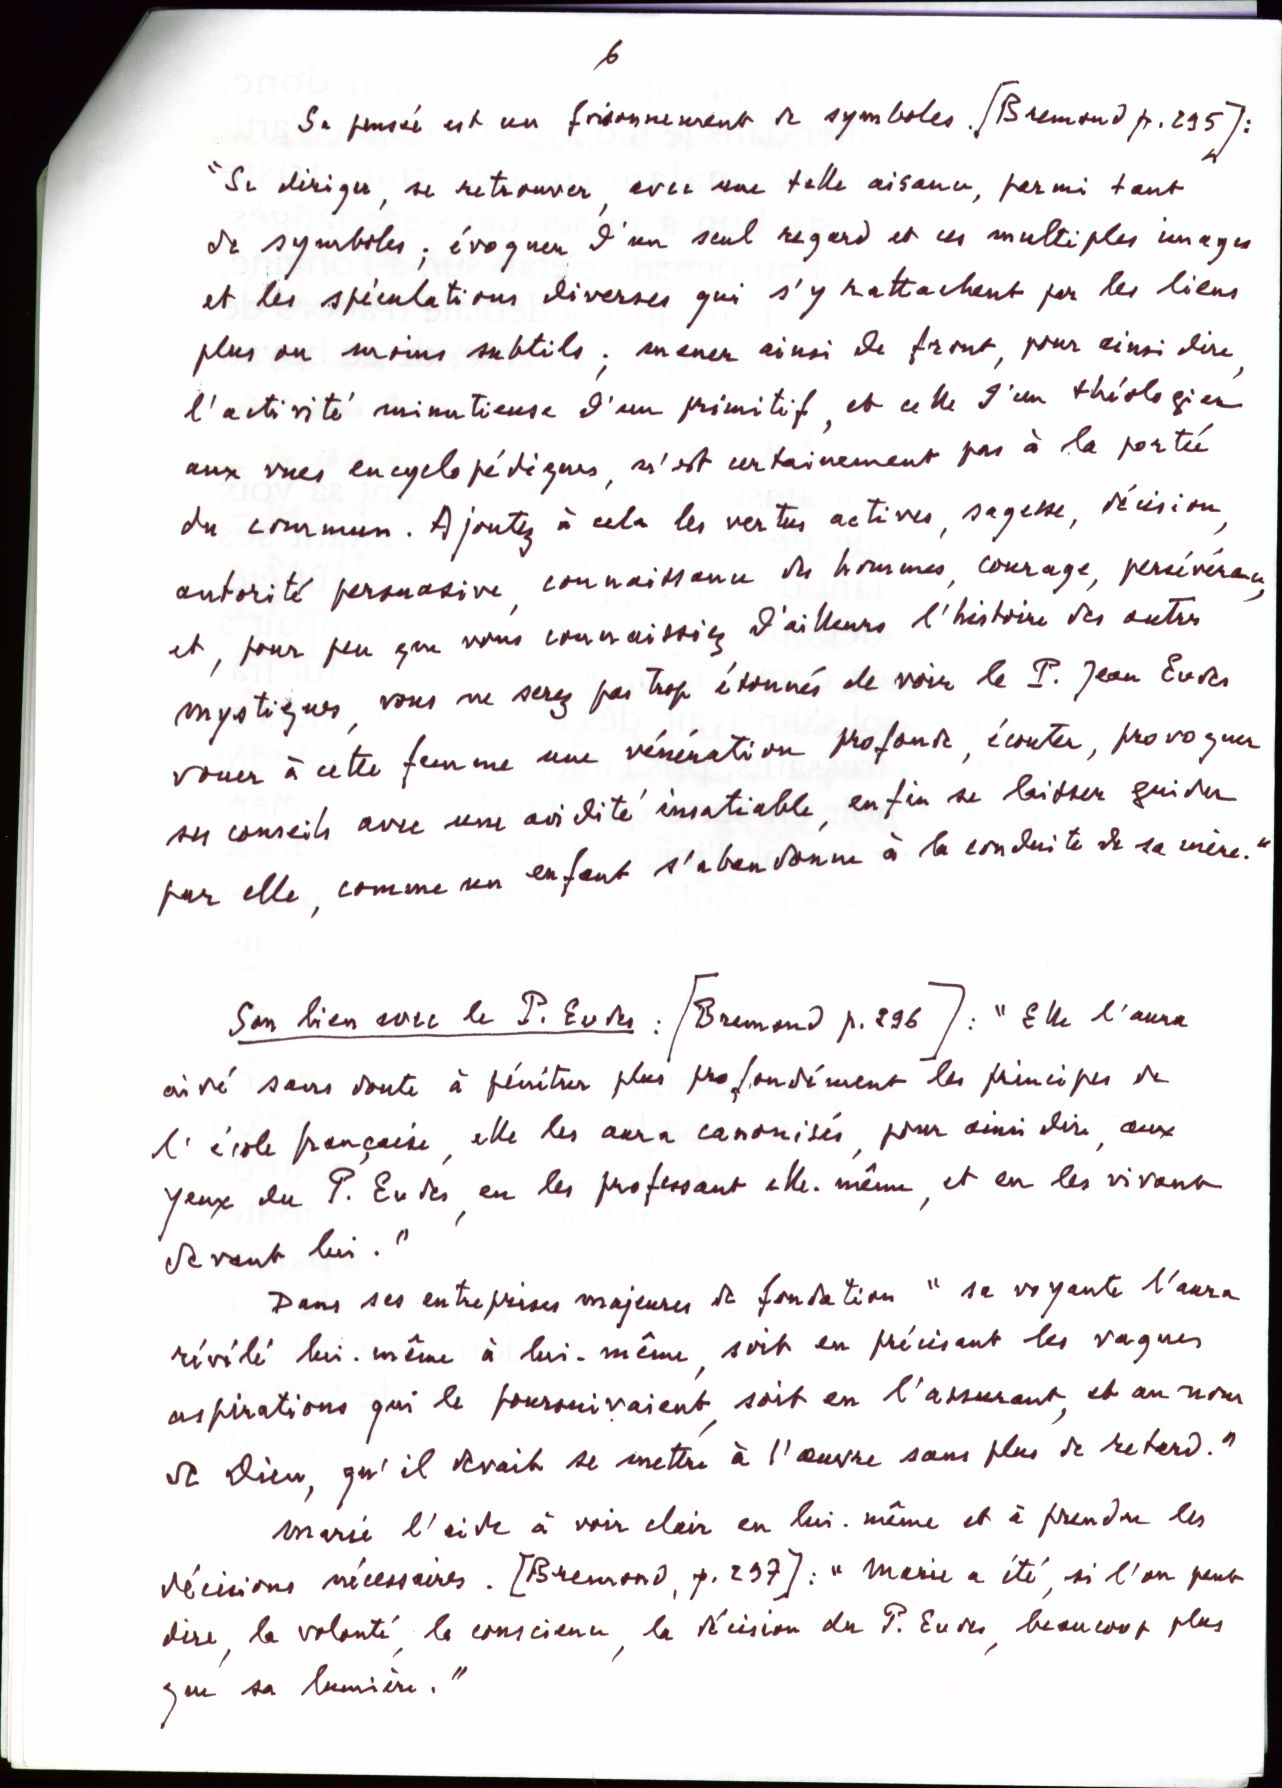 6
Sa pensée est un foisonnement de symboles. [Bremond p. 295] :
"Se diriger, se retrouver, avec une telle aisance, parmi tant
de symboles ; évoquer d'un seul regard et ces multiples images
et les spéculations diverses qui s'y rattachent par les liens
plus ou moins subtils ; mener ainsi de front, pour ainsi dire,
l'activité minutieuse d'un primitif, et celle d'un théologien
aux vues encyclopédiques, n'est certainement pas à la portée
du commun. Ajoutez à cela les vertus actives, sagesse, décision,
autorité persuasive, connaissance des hommes, courage, persévérance,
et, pour peu que vous connaissiez d'ailleurs l'histoire des autres
mystiques, vous ne serez pas trop étonnés de voir le P. Jean Eudes
vouer à cette femme une vénération profonde, écouter, provoquer
ses conseils avec une avidité insatiable, enfin se laisser guider
par elle, comme un enfant s'abandonne à la conduite de sa mère."
Son lien avec le P. Eudes : [Bremond p. 296] : "Elle l'aura
aidé sans doute à pénétrer plus profondément les principes de
l'école française, elle les aura canonisés, pour ainsi dire, aux
yeux du P. Eudes, en les professant elle-même, et en les vivant
devant lui."
Dans ses entreprises majeures de fondation "sa voyante l'aura
révélé lui-même à lui-même, soit en précisant les vagues
aspirations qui le poursuivaient, soit en l'assurant, et au nom
de Dieu, qu'il devait se mettre à l'œuvre sans plus de retard."
Marie l'aide à voir clair en lui-même et à prendre les
décisions nécessaires. [Bremond, p. 297] : "Marie a été, si l'on peut
dire, la volonté, la conscience, la décision du P. Eudes, beaucoup plus
que sa lumière."